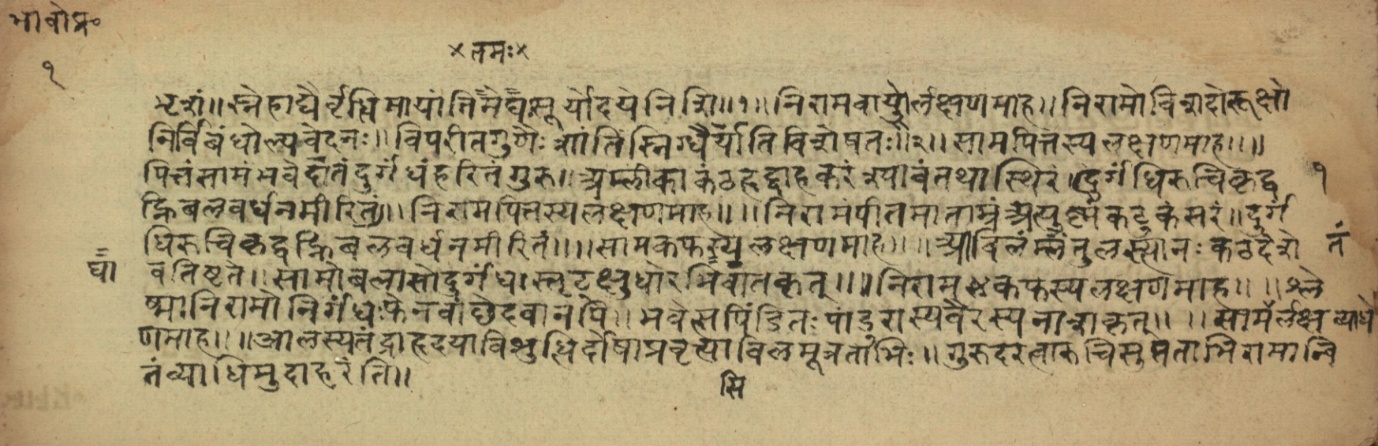 भावोप्र॰
१
×तमः×
भृशं॥ स्नेहाद्यैर्वृद्धिमायांतिमेघैःसूर्योदये निशि॥१॥ निरामवायोर्लक्षणमाह॥ निरामो विशदो रूक्षो
निर्विबंधोल्पवेदनः॥ विपरीतगुणैः शांतिं स्निग्धैर्याति विशेषतः॥२॥ सामपित्तस्य लक्षणमाह॥॥
पित्तं सामं भवेदातं दुर्गंधं हरितं गुरु॥ अम्लीकाकंठहृद्दाहकरं श्यावं तथा स्थिरं॥ दुर्गंधिरुचिकृद्व १
ह्निबलवर्धनमीरितं॥॥ निरामपित्तस्य लक्षणमाह॥॥ निरामं पीतमाताम्रं अत्युष्णं कटुकं सरं॥ दुर्गं
धिरुचिकृद्वह्निबलवर्धनमीरितं॥॥ सामकफस्य लक्षणमाह॥॥ आविलंस्तंतुलस्त्यानः कंठदेशे तं
घा वतिष्टते॥ सामो बलासो दुर्गंधः स्तृट्क्षुधारभिघातकृत्॥॥ निराम कफस्य लक्षणमाह॥॥ श्ले
ष्मानिरामो निर्गंधः फेनवांछेदवानपि॥ भवेत्सपिंडितः पांडुरास्यवैरस्यनाशकृत्॥॥ सामंर्लक्ष व्याधे
णमाह॥॥ आलस्यतंद्राहृदयाविशुद्धिर्दोषाप्रवृत्याविलमूत्रताभिः॥ गुरूदरत्वारुचिसुप्तताभिरामान्वि
तं व्याधिमुदाहरंति॥
सि